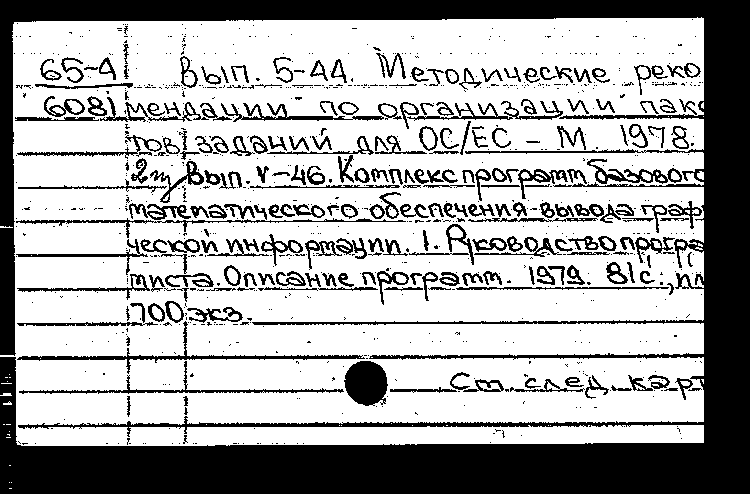 65-4 Вып. 5-44. Методические реко
6081 мендации по организации паке
тов заданий для ОС/ЕС - М. 1978.
2 экз Вып. V-46. Комплекс программ базового
математического обеспечения вывода графи
ческой информации. 1. Руководство програм
миста. Описание программ. 1979. 81 с., ил
700 экз.
См. след. карт